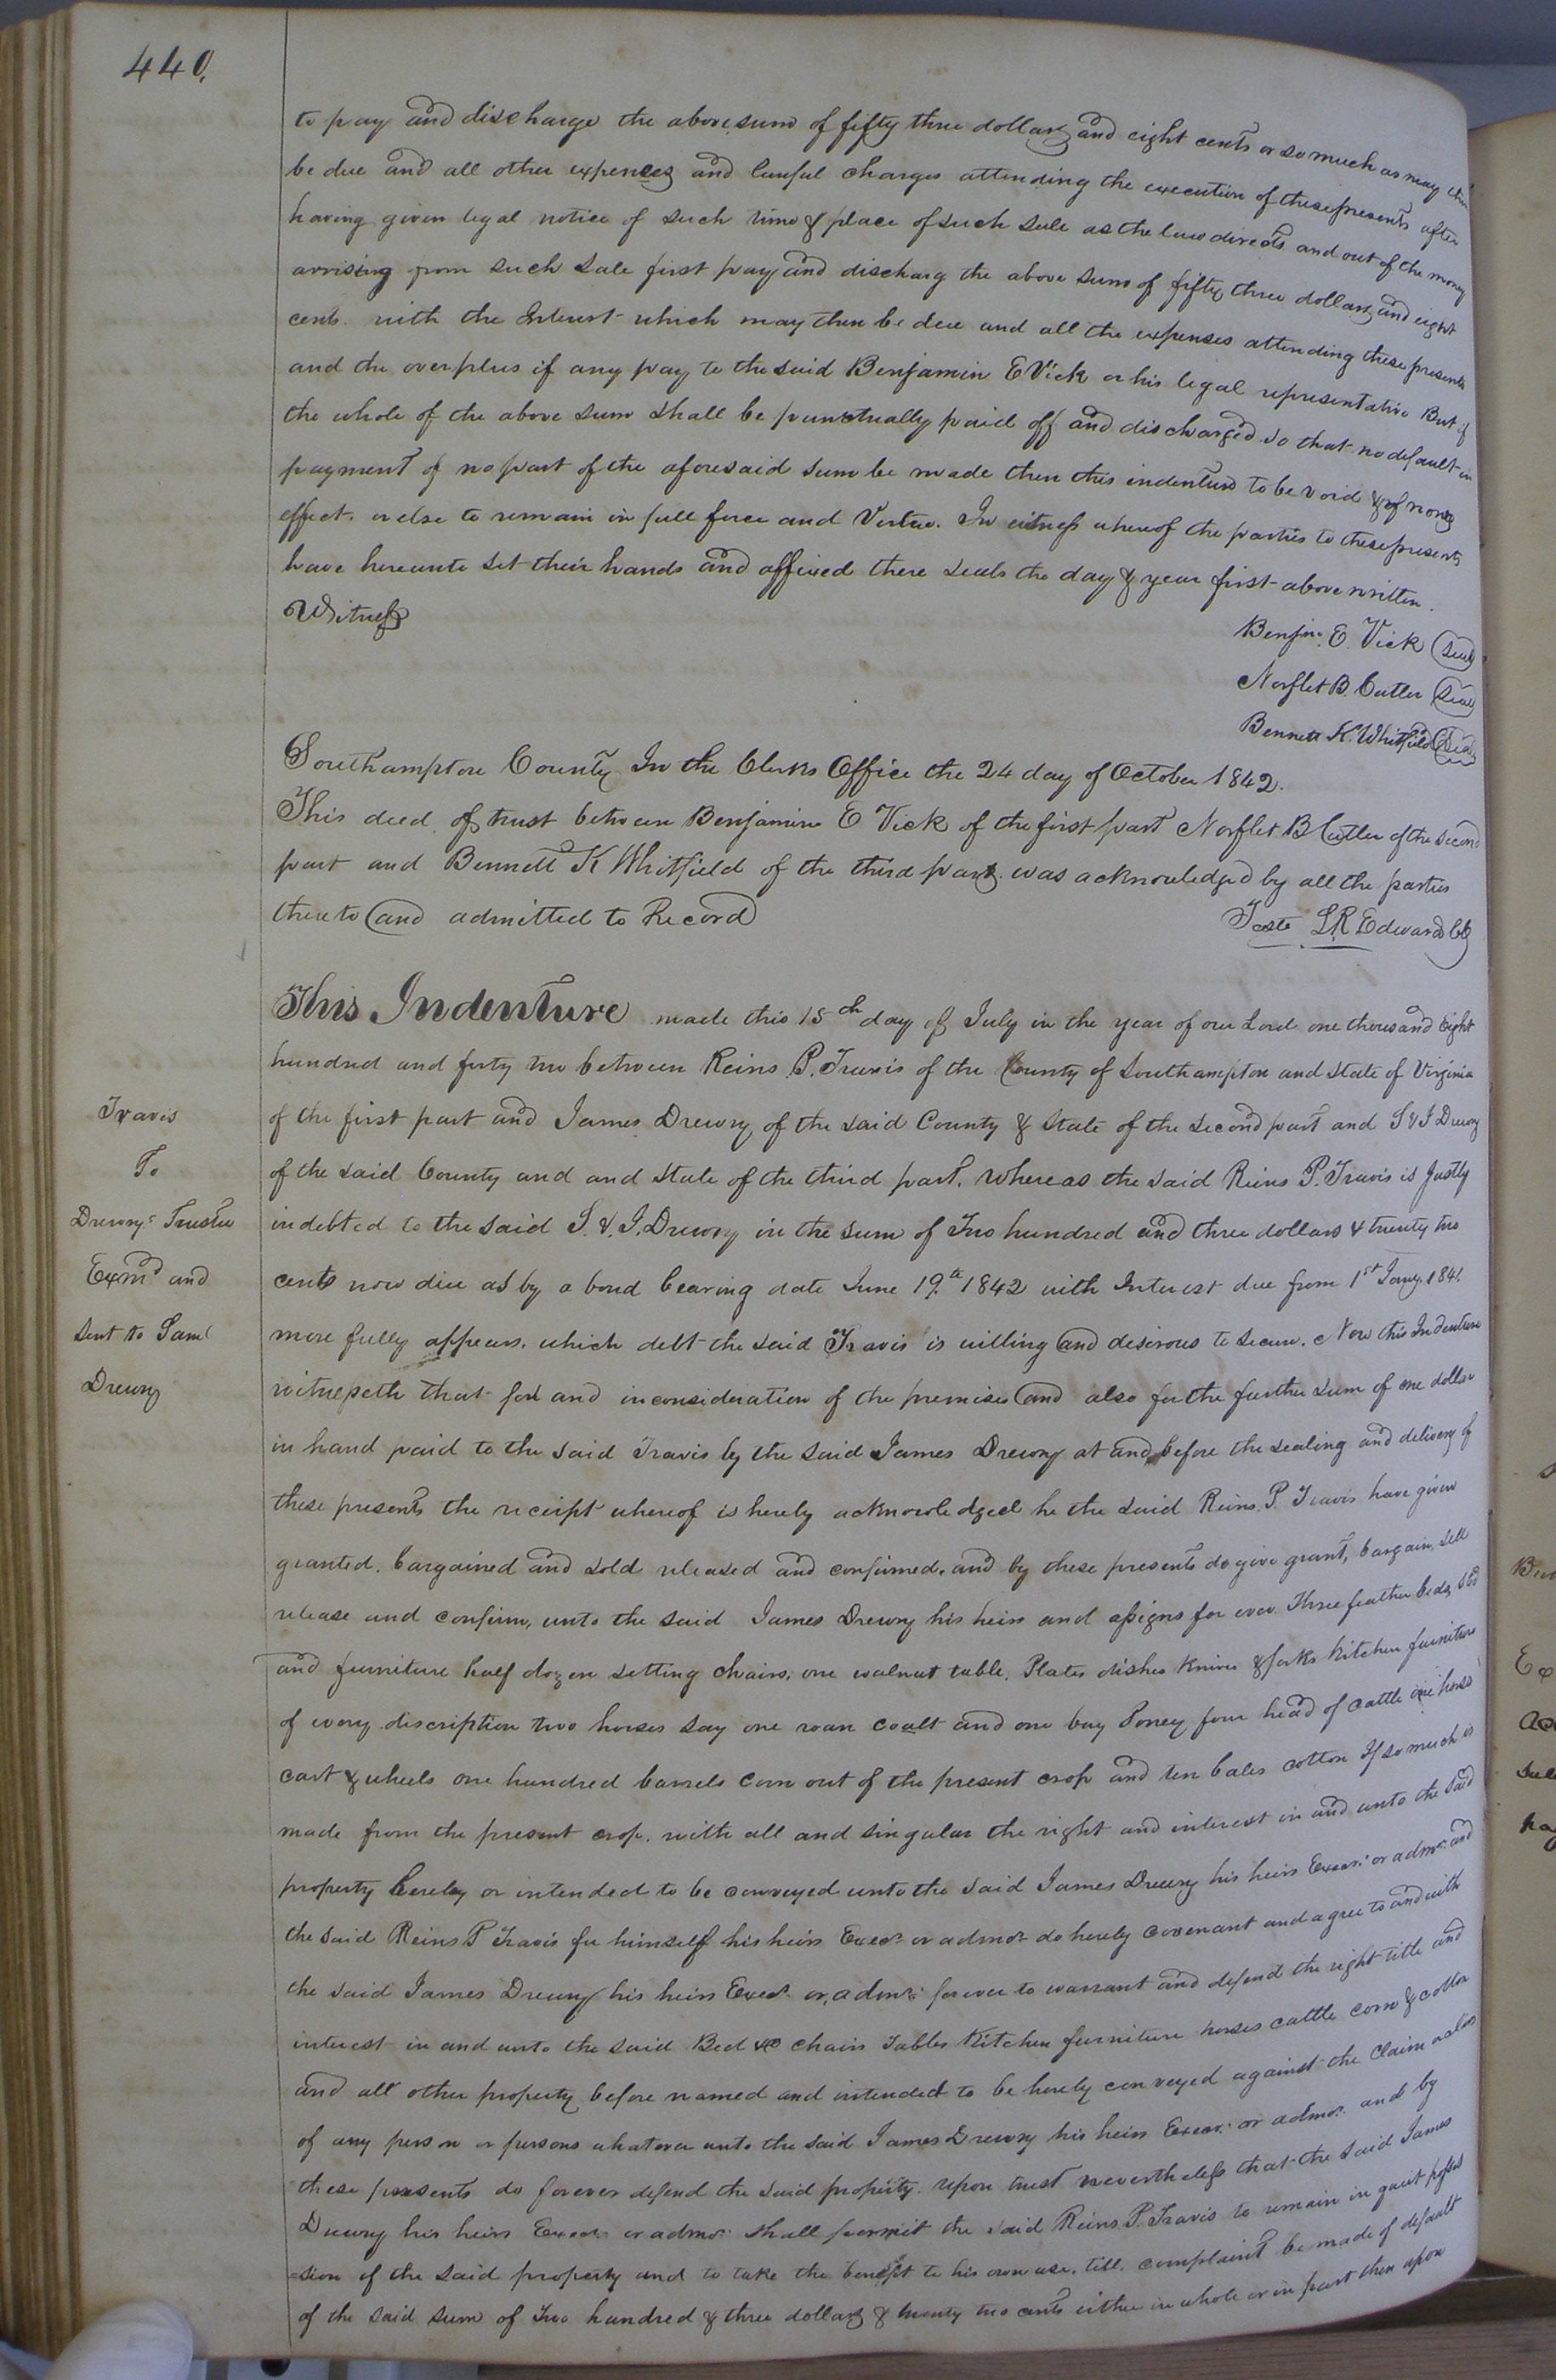 440.
to pay and discharge the above sum of fifty three dollars and eight cents or so much as may then
be due and all other expences and lawful charges attending the execution of these presents after
having given legal notice of such time & place of such sale as the law directs and out of the money
arrising from such sale first pay and discharg the above sum of fifty three dollars and eight
cents with the Interest which may then be due and all the expenses attending these presents
and the overplus if any pay to the said Benjamin E Vick or his legal representative But if
the whole of the above sum shall be punctually paid off and discharged so that no default in
payment of no part of the aforesaid sum be made then this indenture to be void & of none
effect. or else to remain in full force and Virtue. In witness whereof the parties to these presents
have hereunto set their hands and affixed there seals the day & year first above written.
Witness
Benjn. E. Vick (Seal)
Norflet B. Cutler (Seal)
Bennett K. Whitfield (Seal)
Southampton County In the Clerks Office the 24 day of October 1842.
This deed of trust between Benjamin E Vick of the first part Norflet B Cutler of the second
part and Bennett K Whitfield of the third part was acknowledged by all the parties
thereto and admitted to Record
Teste L.R. Edwards Clk
This Indenture made this 15th day of July in the year of our Lord one thousand Eight
hundred and forty two between Reins P. Travis of the County of Southampton and State of Virginia
of the first part and James Drewry of the said County & State of the second part and S & J Drewry
of the said County and and State of the third part. Whereas the said Reins P. Travis is Justly
indebted to the said S. & J. Drewry in the sum of Two hundred and three dollars & twenty two
cents now due as by a bond bearing date June 19th 1842 with Interest due from 1st Jany. 1841.
more fully appears. which debt the said Travis is willing and desirous to secure. Now this Indenture
witnesseth that for and inconsideration of the premises and also for the further sum of one dollar
in hand paid to the said Travis by the said James Drewry at and before the sealing and delivery of
these presents the receipt whereof is hereby acknowledged he the said Reins. P. Travis have given
granted. bargained and sold released and confirmed. and by these presents do give grant, bargain, sell
release and confirm, unto the said James Drewry his heirs and assigns for ever. Three feather beds, std
and furniture half dozen setting chairs, one walnut table. Plates dishes Knives & forks Kitchen furniture
of every discription two horses say one roan coalt and one bay Poney four head of cattle one horse
cart & wheels one hundred barrels Corn out of the present crop and ten bales cotton If so much is
made from the present crop. with all and singular the right and interest in and unto the said
property hereby or intended to be conveyed unto the said James Drewry his heirs Execrs. or admrs. and
the said Reins P Travis for himself his heirs Execrs or admors do hereby covenant and agree to and with
the said James Drewry his heirs Execrs. or admrs. forever to warrant and defend the right title and
interest in and unto the said Bed &c chairs Tables Kitchen furniture horses cattle corn & cotton
and all other property before named and intended to be hereby conveyed against the Claim or claims
of any person or persons whatever unto the said James Drewry his heirs Execrs. or admors. and by
these presents do forever defend the said property. upon trust nevertheless that the said James
Drewry his heirs Execrs or admors. shall permit the said Reins. P. Travis to remain in quiet posses
=sion of the said property and to take the benefit to his own use. till complaint be made of default
of the said sum of Two hundred & three dollars & twenty two cents either in whole or in part then upon
Travis
To
Drewrys Trustee
Exmd and
sent to Saml
Drewry